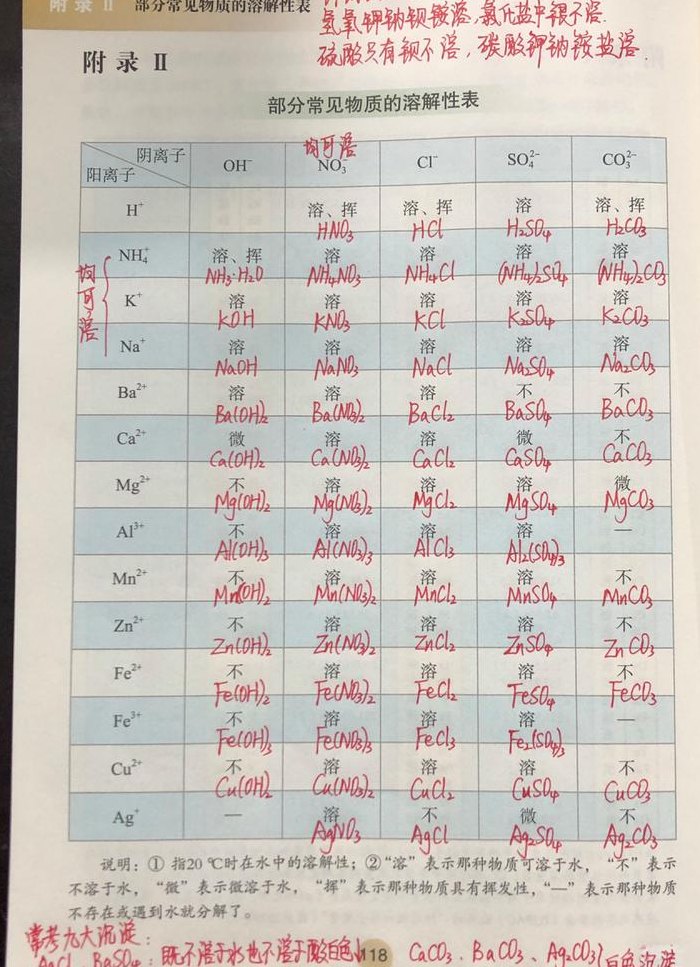 附录 II 部分常见物质的溶解性表
氢氧钾钠钡铵溶,氯化盐中银不溶.
硫酸只有钡不溶,碳酸钾钠铵盐溶.
附录 II
部分常见物质的溶解性表
均可溶
阴离子 阳离子 OH⁻ NO₃⁻ Cl⁻ SO₄²⁻ CO₃²⁻
H⁺ 溶、挥 溶、挥 溶 溶、挥
HNO₃ HCl H₂SO₄ H₂CO₃
均可溶
NH₄⁺ 溶、挥 溶 溶 溶 溶
NH₃·H₂O NH₄NO₃ NH₄Cl (NH₄)₂SO₄ (NH₄)₂CO₃
K⁺ 溶 溶 溶 溶 溶
KOH KNO₃ KCl K₂SO₄ K₂CO₃
Na⁺ 溶 溶 溶 溶 溶
NaOH NaNO₃ NaCl Na₂SO₄ Na₂CO₃
Ba²⁺ 溶 溶 溶 不 不
Ba(OH)₂ Ba(NO₃)₂ BaCl₂ BaSO₄ BaCO₃
Ca²⁺ 微 溶 溶 微 不
Ca(OH)₂ Ca(NO₃)₂ CaCl₂ CaSO₄ CaCO₃
Mg²⁺ 不 溶 溶 溶 微
Mg(OH)₂ Mg(NO₃)₂ MgCl₂ MgSO₄ MgCO₃
Al³⁺ 不 溶 溶 溶 —
Al(OH)₃ Al(NO₃)₃ AlCl₃ Al₂(SO₄)₃
Mn²⁺ 不 溶 溶 溶 不
Mn(OH)₂ Mn(NO₃)₂ MnCl₂ MnSO₄ MnCO₃
Zn²⁺ 不 溶 溶 溶 不
Zn(OH)₂ Zn(NO₃)₂ ZnCl₂ ZnSO₄ ZnCO₃
Fe²⁺ 不 溶 溶 溶 不
Fe(OH)₂ Fe(NO₃)₂ FeCl₂ FeSO₄ FeCO₃
Fe³⁺ 不 溶 溶 溶 —
Fe(OH)₃ Fe(NO₃)₃ FeCl₃ Fe₂(SO₄)₃
Cu²⁺ 不 溶 溶 溶 不
Cu(OH)₂ Cu(NO₃)₂ CuCl₂ CuSO₄ CuCO₃
Ag⁺ — 溶 不 微 不
AgNO₃ AgCl Ag₂SO₄ Ag₂CO₃
说明:① 指20 ℃时在水中的溶解性;②“溶”表示那种物质可溶于水,“不”表示
不溶于水,“微”表示微溶于水,“挥”表示那种物质具有挥发性,“—”表示那种物质
不存在或遇到水就分解了。
常考九大沉淀:
AgCl、BaSO₄:既不溶于水也不溶于酸白色↓ 118 CaCO₃、BaCO₃、Ag₂CO₃}白色沉淀